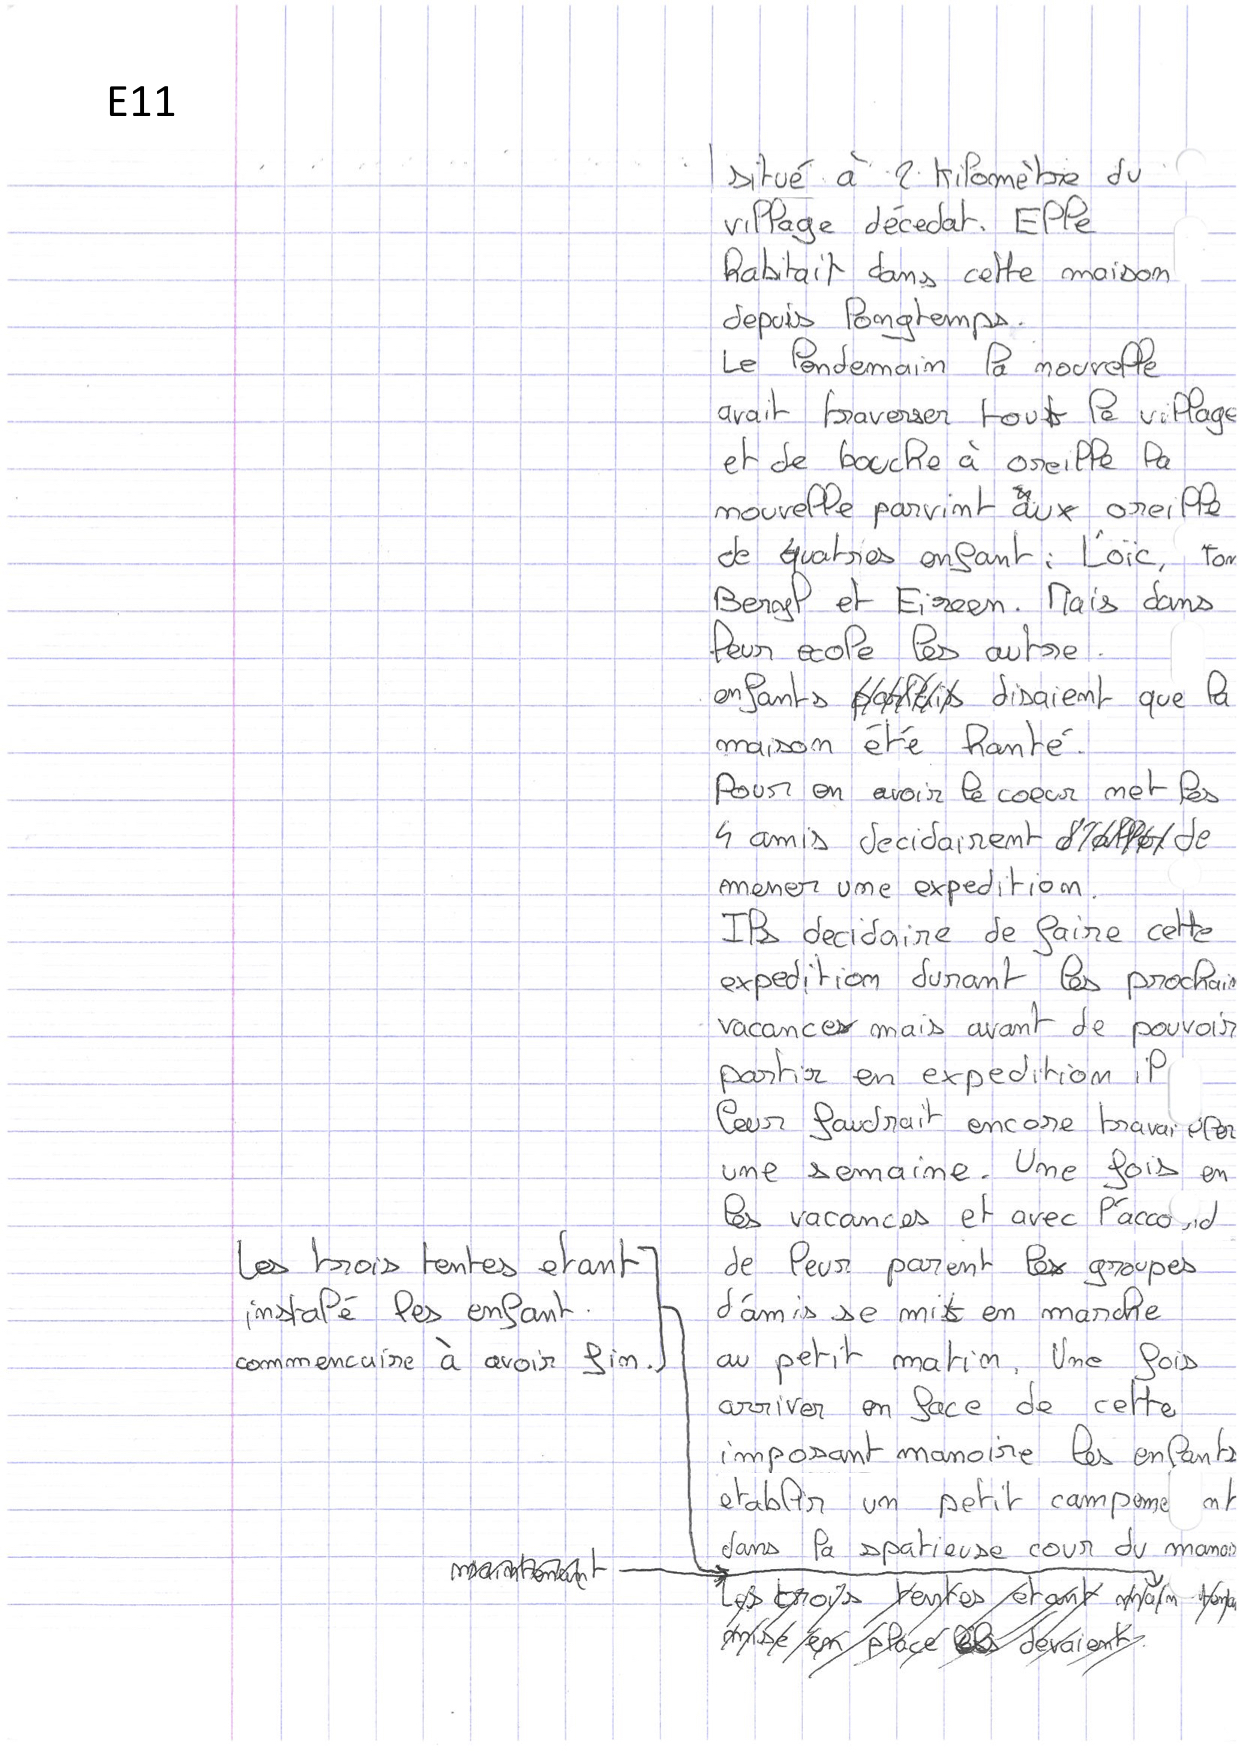 E11
situé à 2 kilomètre du
village décedat. Elle
habitait dans cette maison
depuis longtemps.
Le lendemain la nouvelle
avait traverser tout le village
et de bouche à oreille la
nouvelle parvint aux oreille
de quatres enfant : Loïc, Tom
et Eireen. Mais dans
leur ecole les autre
enfants disaient que la
maison été hanté.
Pour en avoir le coeur net les
4 amis decidairent de
mener une expedition.
Ils decidaire de faire cette
expedition durant les prochain
vacances mais avant de pouvoir
partir en expedition il
leur faudrait encore travailler
une semaine. Une fois en
les vacances et avec l'accord
de leur parent les groupes
d'amis se mit en marche
au petit matin. Une fois
arriver en face de cette
imposant manoire les enfants
etablir un petit campement
dans la spatieuse cour du manoir
Les trois tentes etant
instalé les enfant
commencaire à avoir fim.
maintenant
Les trois tentes etant
mise en place ils devaient